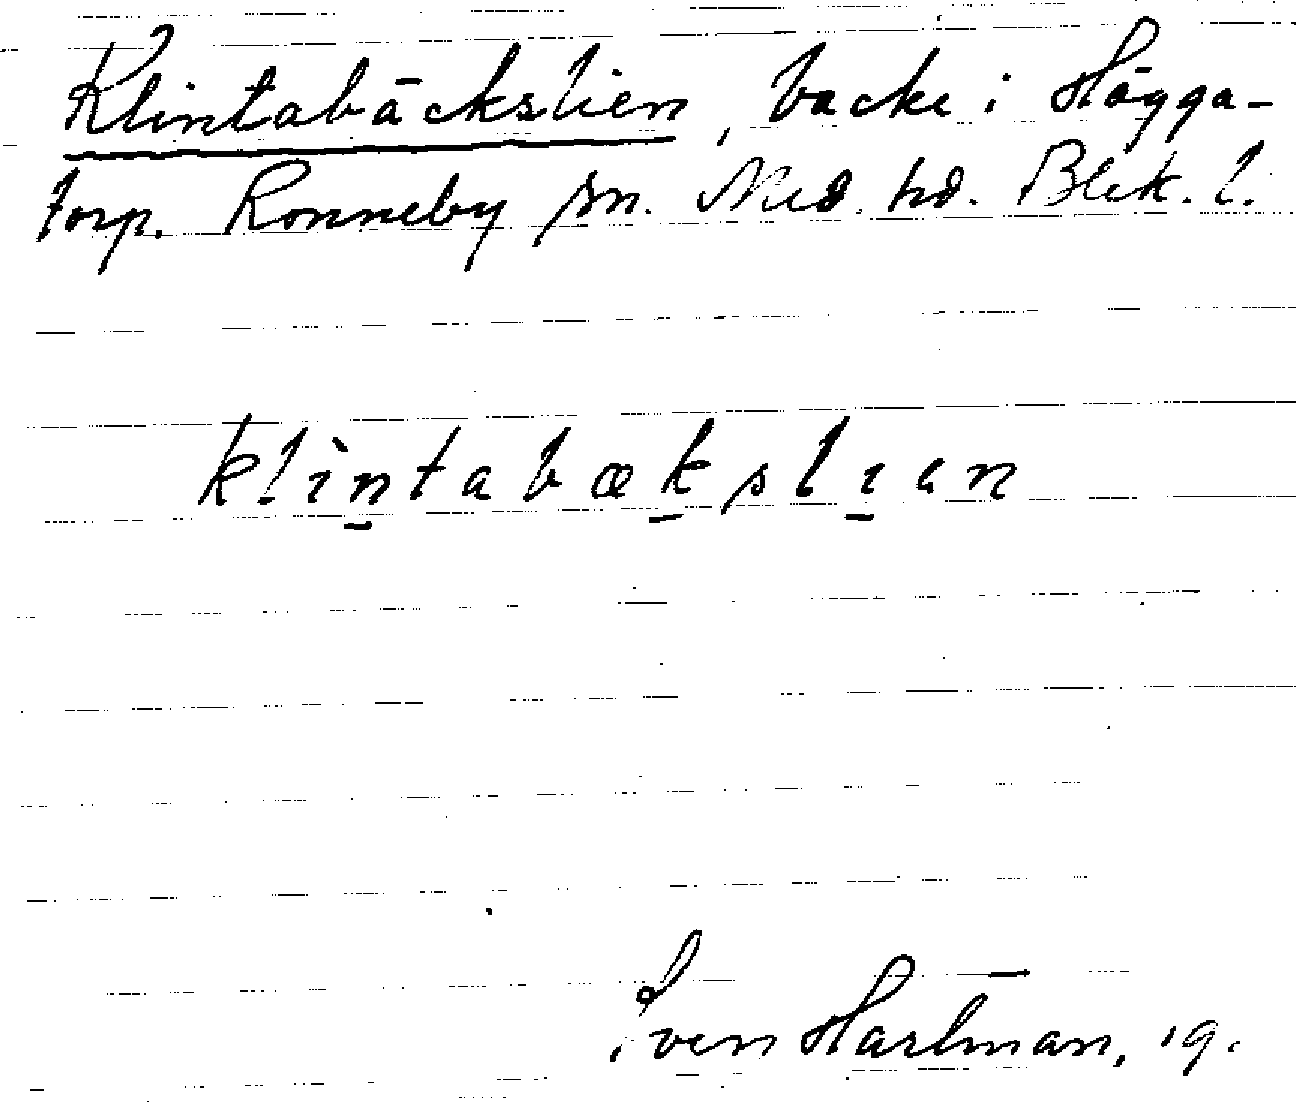 Klintabäckslien, backe i Högga-
torp. Ronneby sn. Med. hd. Blek. l.
klìntabækslıan
Sven Hartman, 19.